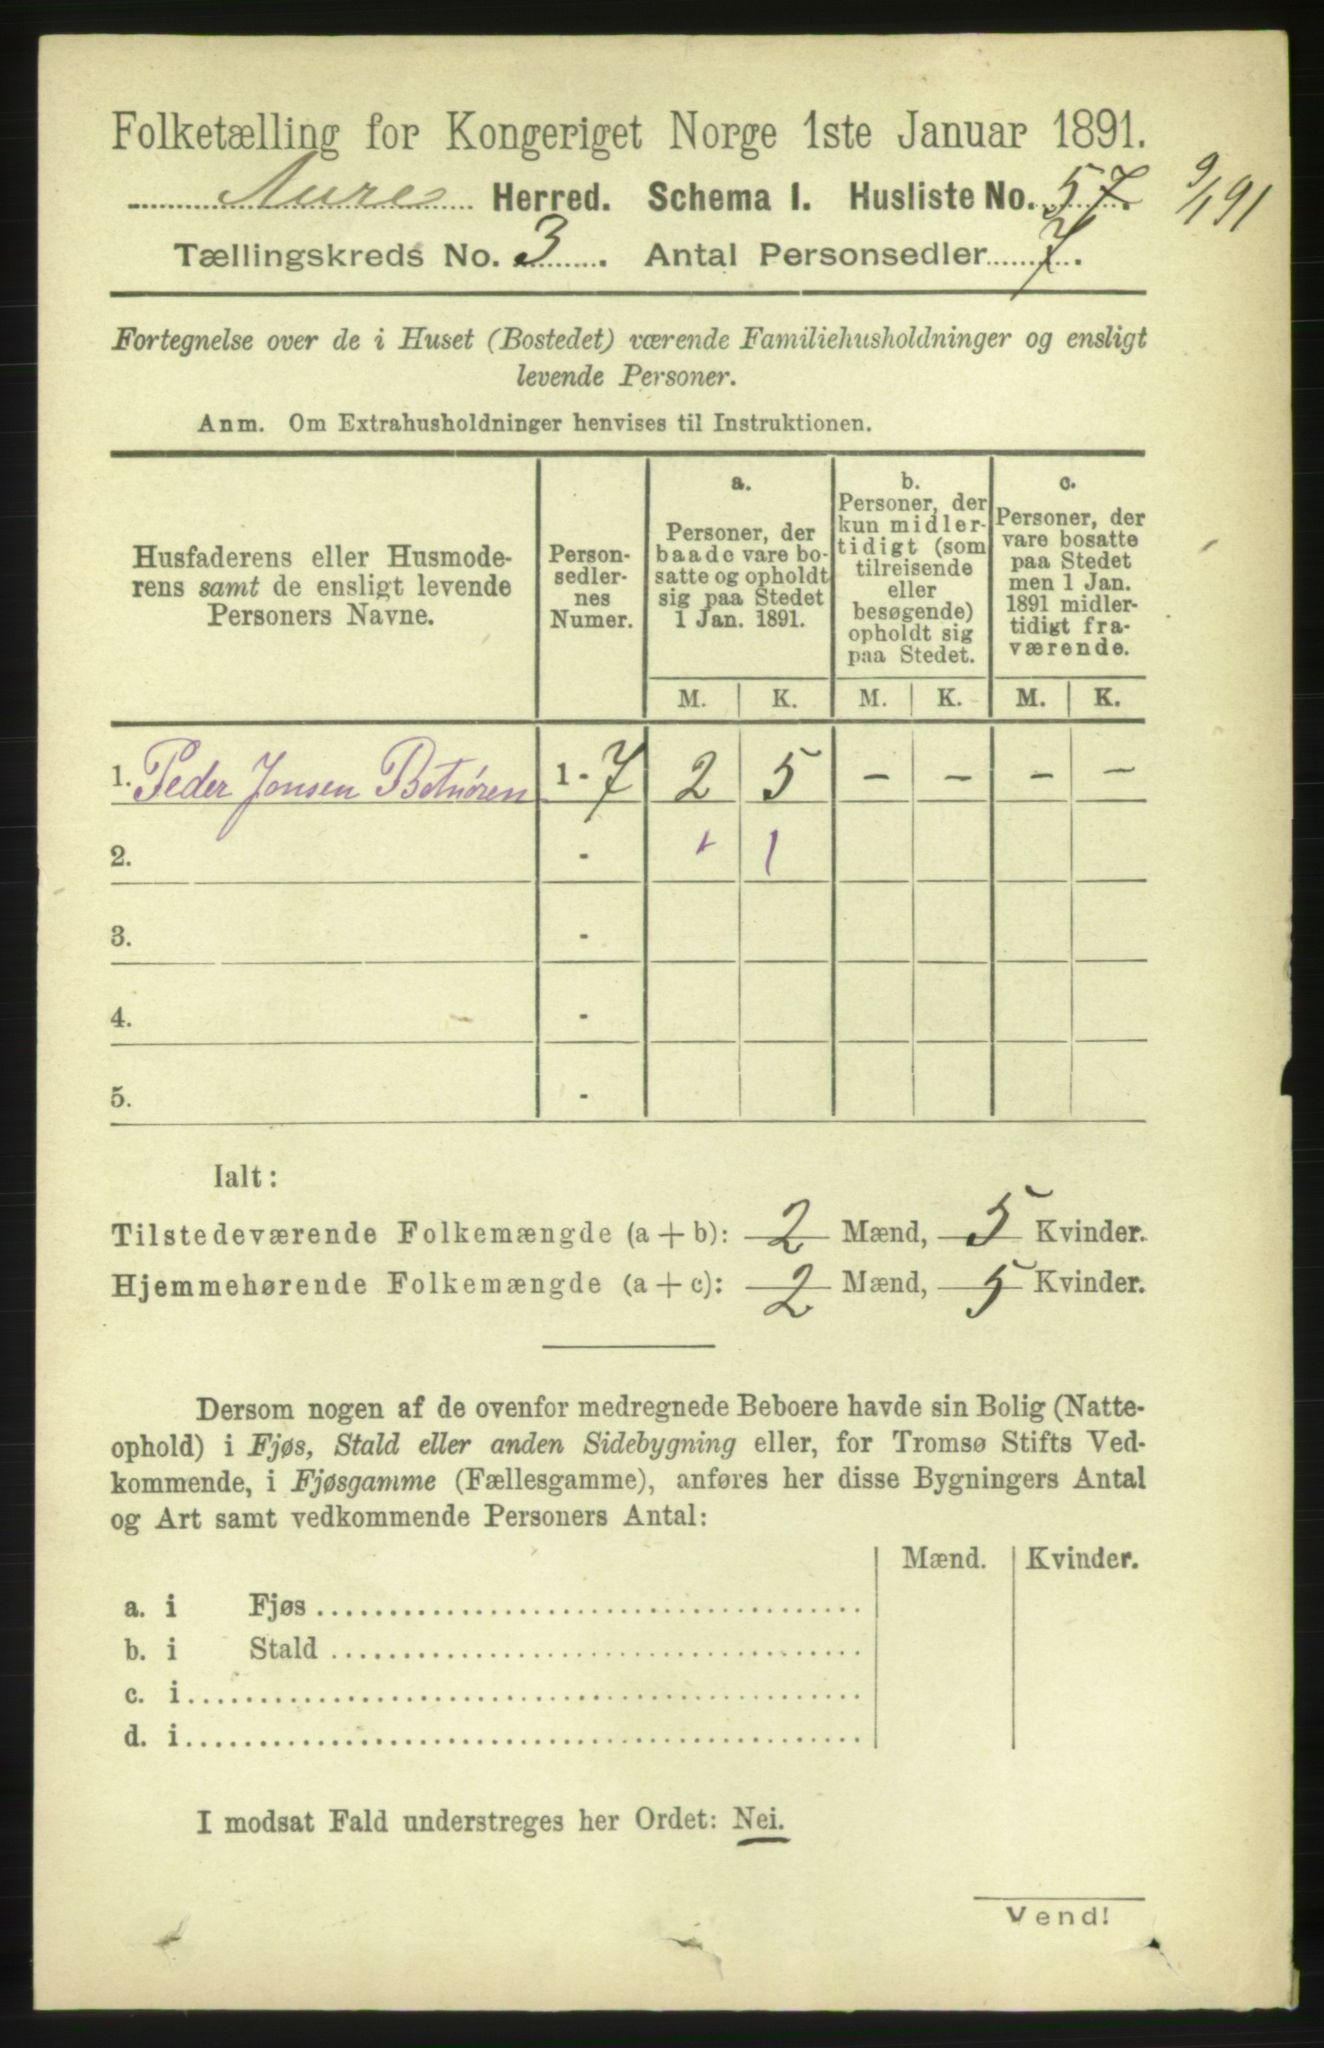 Folketælling for Kongeriget Norge 1ste Januar 1891.
Aures Herred. Schema I. Husliste No. 57.
9/1 91
Tællingskreds No. 3. Antal Personsedler 7.
Fortegnelse over de i Huset (Bostedet) værende Familiehusholdninger og ensligt
levende Personer.
Anm. Om Extrahusholdninger henvises til Instruktionen.
Husfaderens eller Husmode-
rens samt de ensligt levende
Personers Navne.
Person-
sedler-
nes
Numer.
a.
Personer, der
baade vare bo-
satte og opholdt
sig paa Stedet
1 Jan. 1891.
b.
Personer, der
kun midler-
tidigt (som
tilreisende
eller
besøgende)
opholdt sig
paa Stedet.
c.
Personer, der
vare bosatte
paa Stedet
men 1 Jan.
1891 midler-
tidigt fra-
værende.
M. K. M. K. M. K.
1. Peder Jonsen Botnøren 1 - 7 2 5 - - - -
2. - 1
3. -
4. -
5. -
Ialt:
Tilstedeværende Folkemængde (a + b): 2 Mænd, 5 Kvinder.
Hjemmehørende Folkemængde (a + c): 2 Mænd, 5 Kvinder.
Dersom nogen af de ovenfor medregnede Beboere havde sin Bolig (Natte-
ophold) i Fjøs, Stald eller anden Sidebygning eller, for Tromsø Stifts Ved-
kommende, i Fjøsgamme (Fællesgamme), anføres her disse Bygningers Antal
og Art samt vedkommende Personers Antal:
Mænd. Kvinder.
a. i Fjøs
b. i Stald
c. i
d. i
I modsat Fald understreges her Ordet: Nei.
Vend!